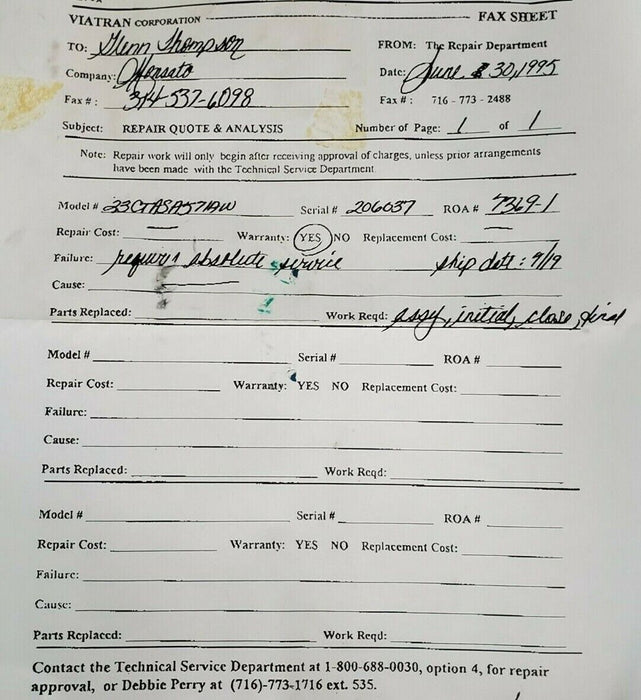 VIATRAN CORPORATION FAX SHEET
TO: Glenn Thompson FROM: The Repair Department
Company: Date: June 30, 1995
Fax #: 314-537-6098 Fax #: 716-773-2488
Subject: REPAIR QUOTE & ANALYSIS Number of Page: 1 of 1
Note: Repair work will only begin after receiving approval of charges, unless prior arrangements
have been made with the Technical Service Department
Model # Serial # 206037 ROA # 7369-1
Repair Cost: — Warranty: YES NO Replacement Cost: —
Failure: requires absolute service ship date: 9/19
Cause: —
Parts Replaced: Work Reqd: assy, initial, close, final
Model # Serial # ROA #
Repair Cost: Warranty: YES NO Replacement Cost:
Failure:
Cause:
Parts Replaced: Work Reqd:
Model # Serial # ROA #
Repair Cost: Warranty: YES NO Replacement Cost:
Failure:
Cause:
Parts Replaced: Work Reqd:
Contact the Technical Service Department at 1-800-688-0030, option 4, for repair
approval, or Debbie Perry at (716)-773-1716 ext. 535.